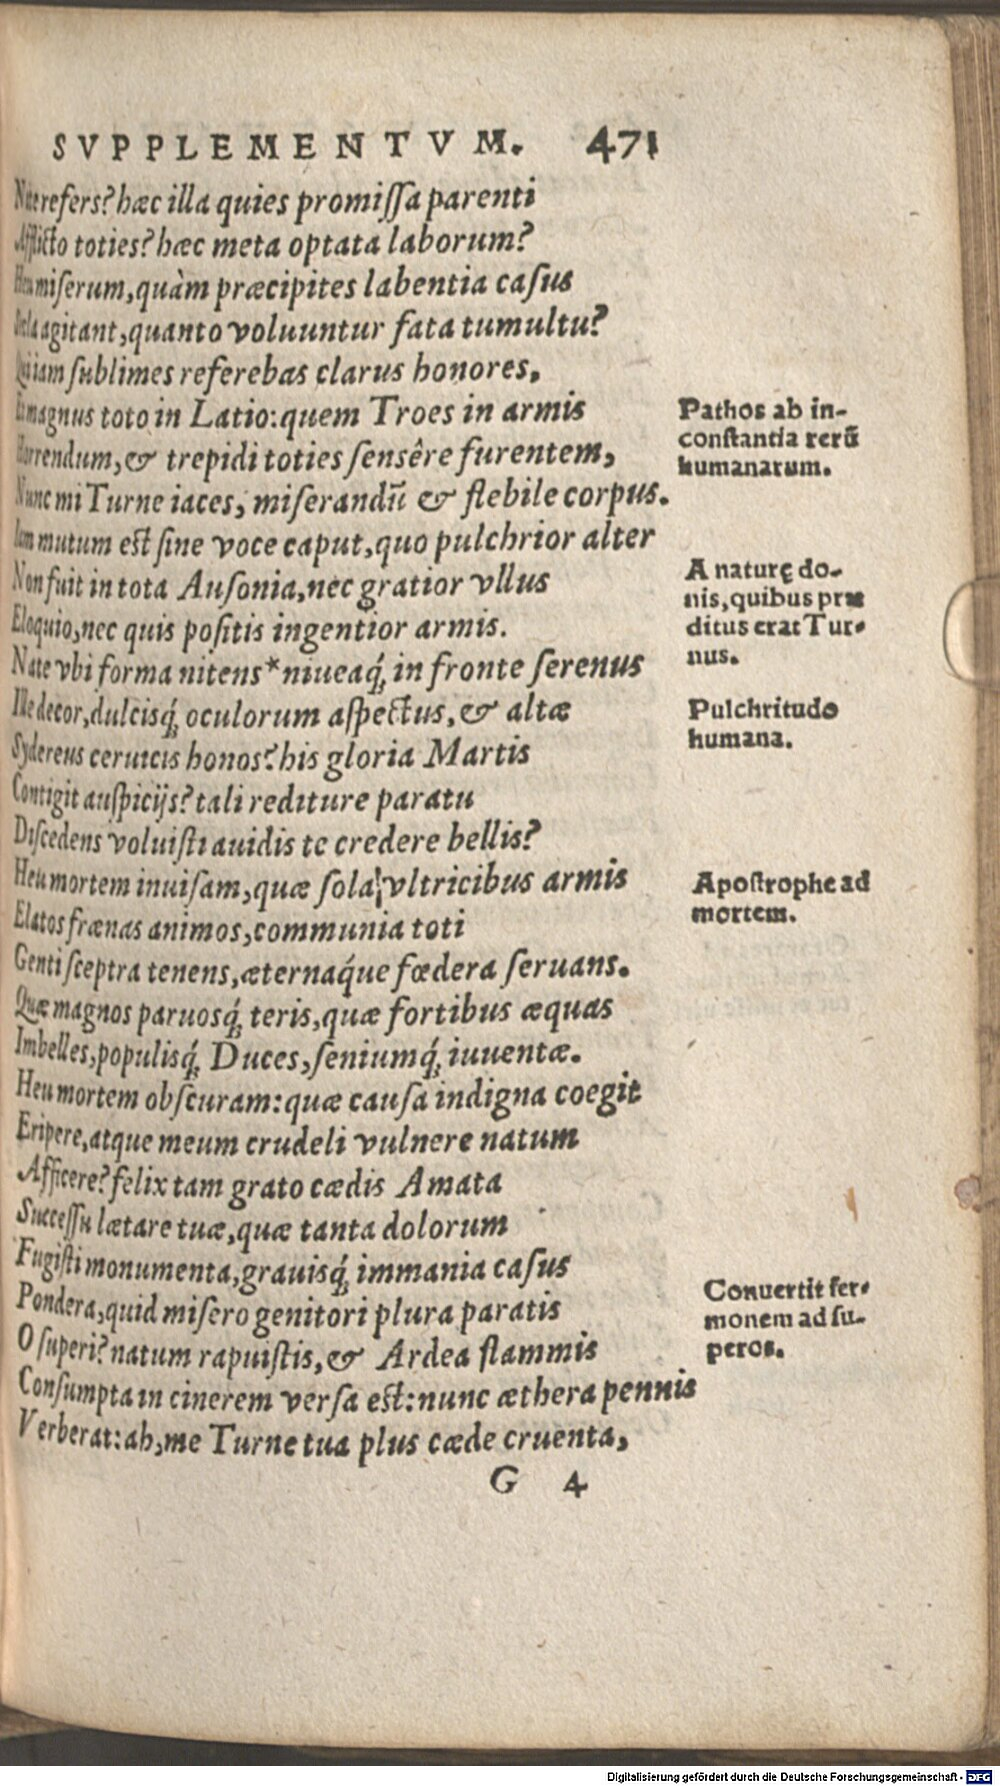 SVPPLEMENTVM. 471
Nate refers? hæc illa quies promiſſa parenti
Afflicto toties? hæc meta optata laborum?
Heu miſerum, quàm præcipites labentia caſus
agitant, quanto voluuntur fata tumultu?
Qui iam ſublimes referebas clarus honores,
Et magnus toto in Latio: quem Troes in armis
Pathos ab in-
conſtantia rerũ
humanarum.
Horrendum, & trepidi toties ſensêre furentem,
Nunc mi Turne iaces, miſerandũ & flebile corpus.
Iam mutum eſt ſine voce caput, quo pulchrior alter
Non fuit in tota Auſonia, nec gratior vllus
A naturę do-
nis, quibus præ
ditus erat Tur-
nus.
Eloquio, nec quis poſitis ingentior armis.
Nate vbi forma nitens* niueaq́; in fronte ſerenus
Ille decor, dulcisq́; oculorum aſpectus, & altæ
Pulchritudo
humana.
Sydereus ceruicis honos? his gloria Martis
Contigit auſpicijs? tali rediture paratu
Diſcedens voluiſti auidis te credere bellis?
Heu mortem inuiſam, quæ ſola vltricibus armis
Apoſtrophe ad
mortem.
Elatos frænas animos, communia toti
Genti ſceptra tenens, æternaq́ue fœdera ſeruans.
Quæ magnos paruosq́; teris, quæ fortibus æquas
Imbelles, populisq́; Duces, ſeniumq́; iuuentæ.
Heu mortem obſcuram: quæ cauſa indigna coegit
Eripere, atque meum crudeli vulnere natum
Afficere? felix tam grato cædis Amata
Succeſſu lætare tuæ, quæ tanta dolorum
Fugiſti monumenta, grauisq́; immania caſus
Pondera, quid miſero genitori plura paratis
Conuertit ſer-
monem ad ſu-
peros.
O ſuperi? natum rapuiſtis, & Ardea flammis
Conſumpta in cinerem verſa eſt: nunc æthera pennis
Verberat: ah, me Turne tua plus cæde cruenta,
G 4
Digitalisierung gefördert durch die Deutsche Forschungsgemeinschaft - DFG